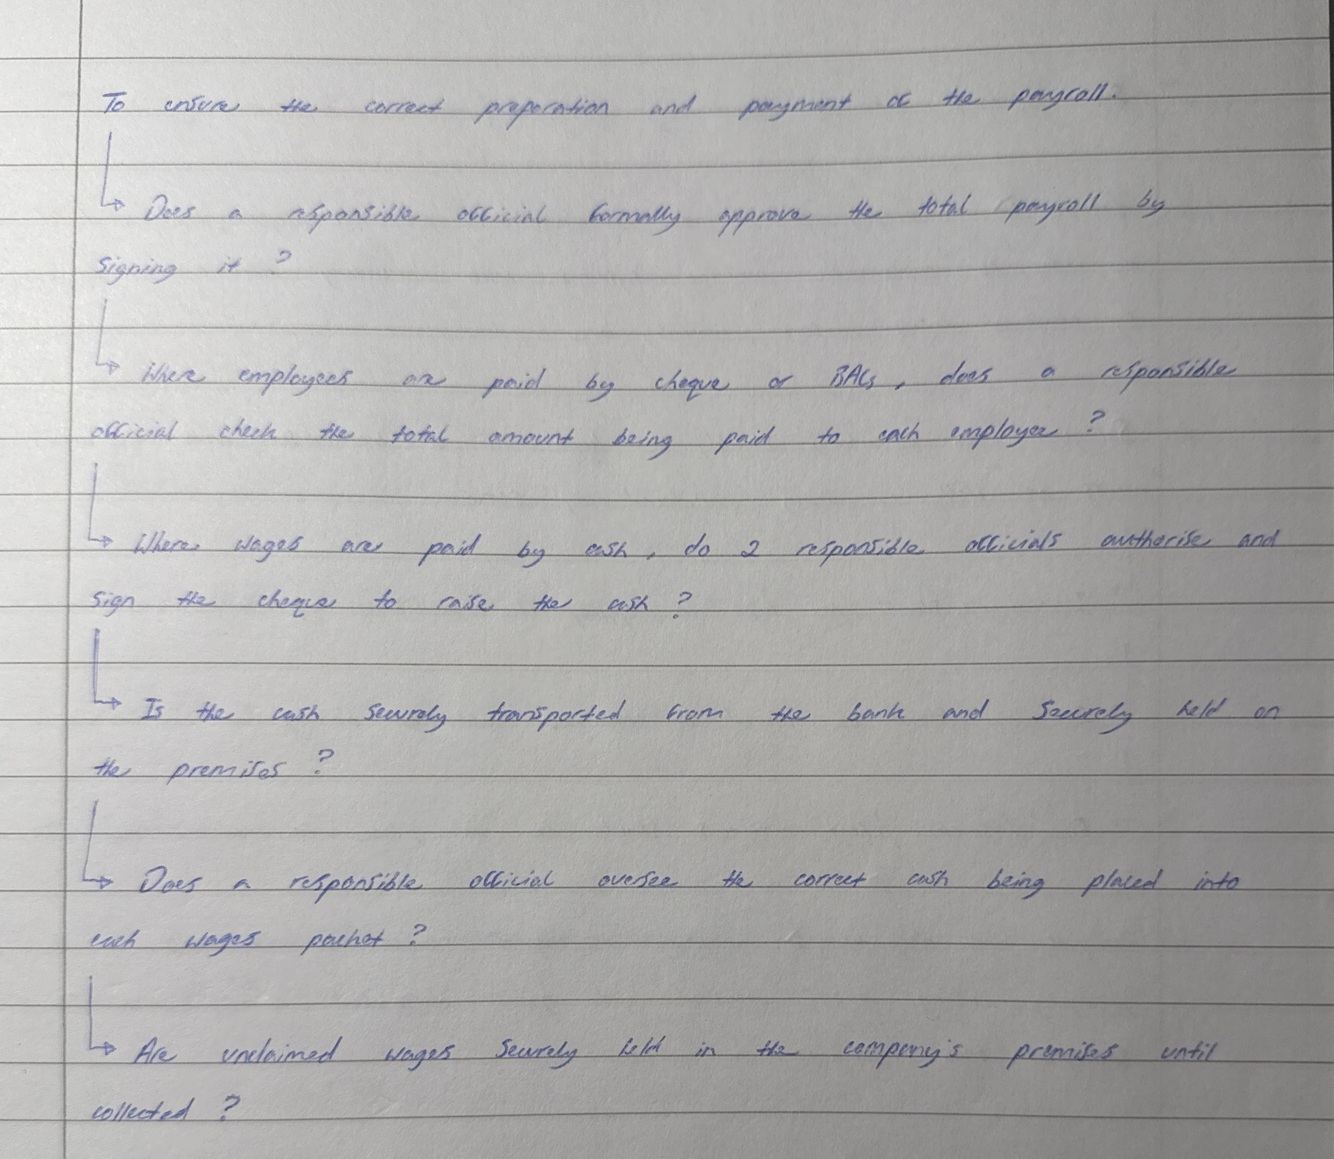 To ensure the correct preparation and payment of the payroll.
↳ Does a responsible official formally approve the total payroll by
signing it ?
↳ Where employees are paid by cheque or BACs, does a responsible
official check the total amount being paid to each employee ?
↳ Where wages are paid by cash, do 2 responsible officials authorise and
sign the cheque to raise the cash ?
↳ Is the cash securely transported from the bank and securely held on
the premises ?
↳ Does a responsible official oversee the correct cash being placed into
each wages packet ?
↳ Are unclaimed wages securely held in the company's premises until
collected ?